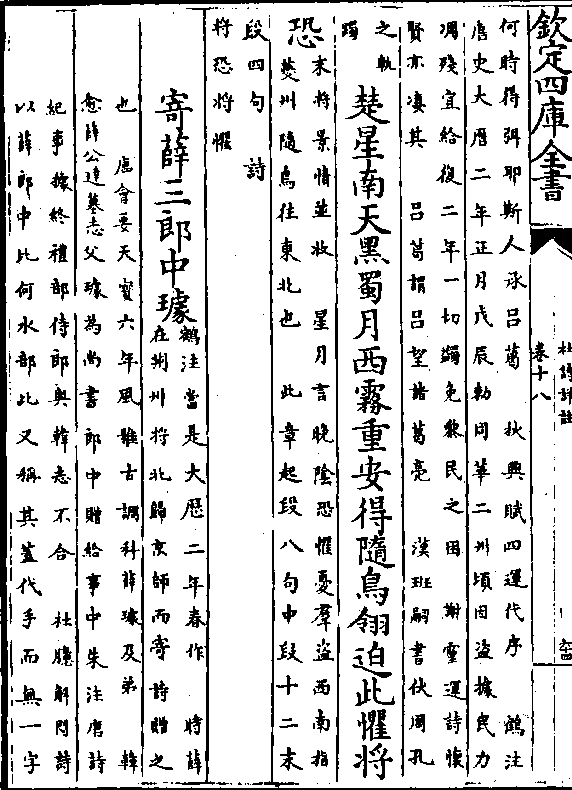 欽定四庫全書
杜詩詳註
卷十八
何時得弭耶斯人承呂葛　秋興賦四運代序　鶴注
唐史大厯二年正月戊辰勅同華二州頃因盜據民力
凋殘宜給復二年一切蠲免黎民之困　謝靈運詩懷
賢亦凄其　呂葛謂呂望諸葛亮　漢班嗣書伏周孔
之軌
躅
楚星南天黑蜀月西霧重安得隨鳥翎迫此懼將
恐
末將景情並收　星月言晚陰恐懼憂羣盜西南指
夔州隨鳥往東北也　此章起段八句中段十二末
段四句　詩
將恐將懼
寄薛三郎中璩
鶴注當是大厯二年春作　時薛
在荊州將北歸京師而寄詩贈之
也　唐會要天寶六年風雅古調科薛璩及弟　韓
愈薛公達墓志父璩為尚書郎中贈給事中朱注唐詩
紀事據終禮部侍郎與韓志不合　杜臆解悶詩
以薛郎中比何水部此又稱其蓋代手而無一字